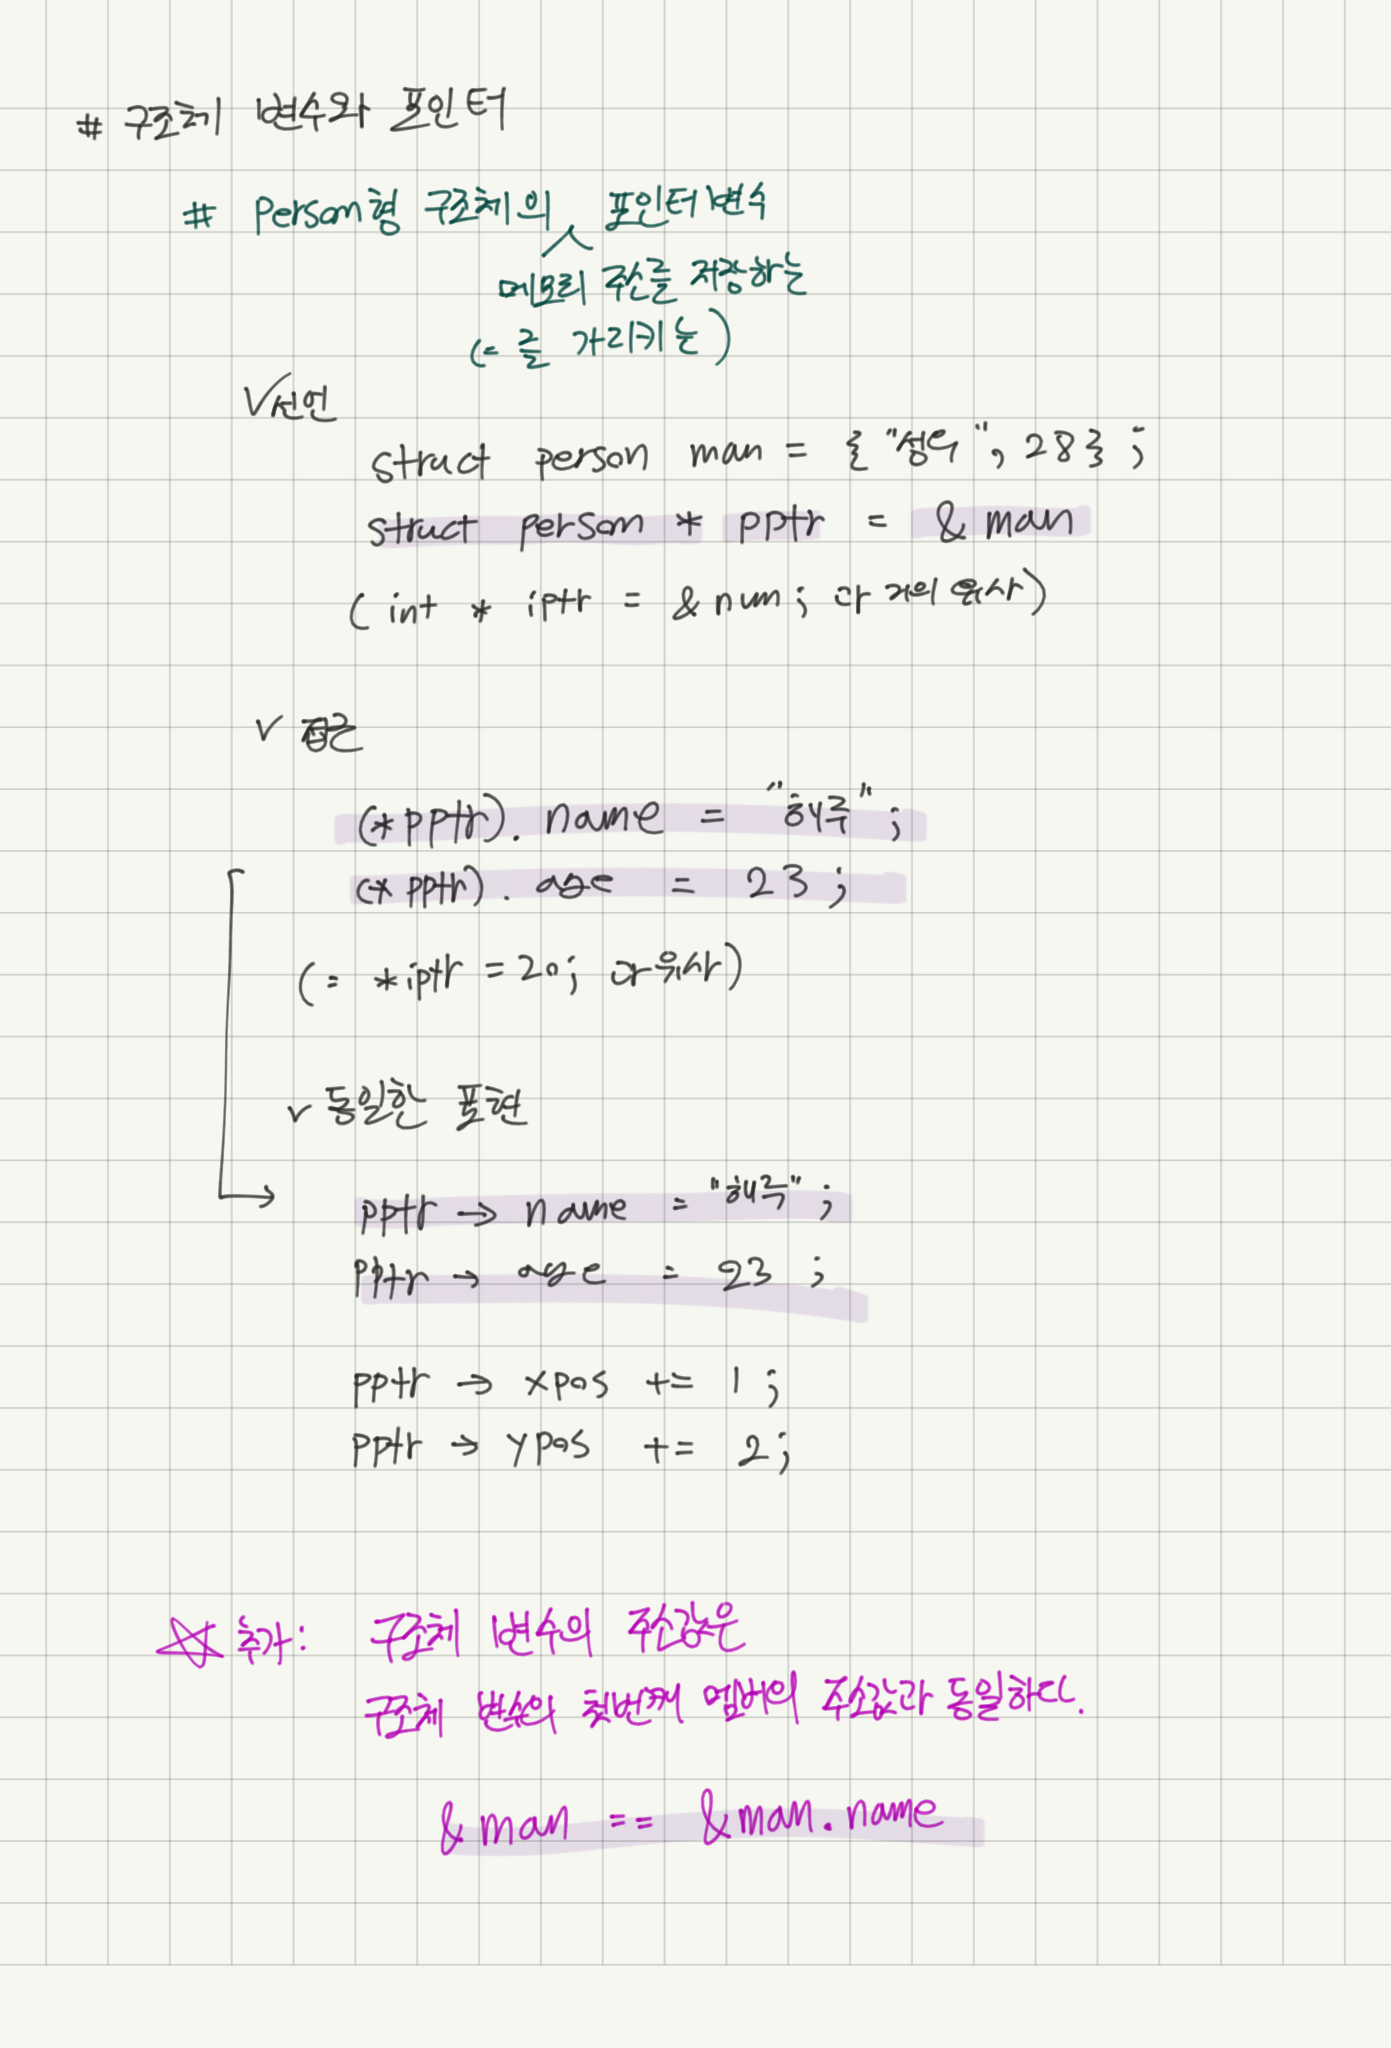 # 구조체 변수와 포인터
# Person형 구조체의 포인터변수
메모리 주소를 저장하는
(= 를 가리키는)
✓선언
struct person man = { "성우", 28 } ;
struct person * pptr = & man
( int * iptr = & num ; 과 거의 유사)
✓ 접근
(*pptr). name = "해주" ;
(* pptr) . age = 23 ;
(= *iptr = 20; 과 유사)
✓ 동일한 표현
pptr → name = "해주" ;
pptr → age = 23 ;
pptr → xpos += 1 ;
pptr → ypos += 2;
☆ 추가: 구조체 변수의 주소값은
구조체 변수의 첫번째 멤버의 주소값과 동일하다.
& man == &man.name